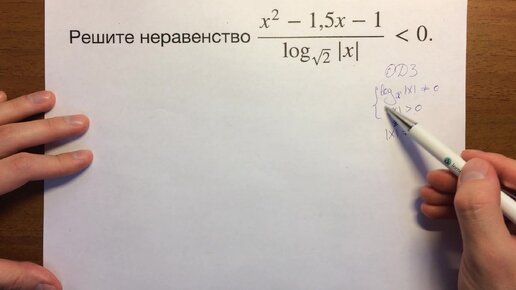 Решите неравенство x² − 1,5x − 1 / log_√2 |x| < 0.
ОДЗ
log_x |x| ≠ 0
|x| > 0